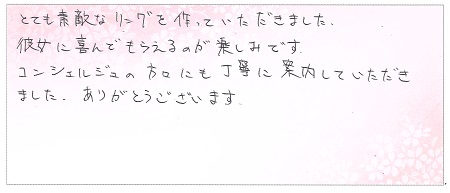 とても素敵なリングを作っていただきました.
彼女に喜んでもらえるのが楽しみです.
コンシェルジュの方々にも丁寧に案内していただき
ました. ありがとうございます.